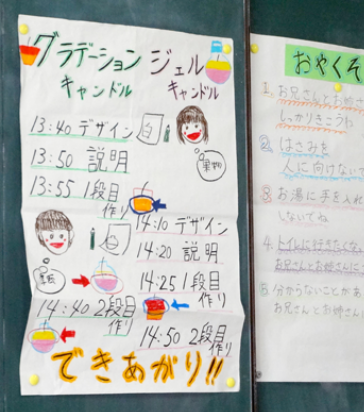 グラデーション ジェル
キャンドル キャンドル
13:40 デザイン
13:50 説明
13:55 1段目
作り
14:10 デザイン
14:20 説明
14:25 1段目
作り
14:40 2段目
作り
14:50 2段目
作り
できあがり!!
おやくそ
1. お兄さんとお姉
しっかりきこうね
2. はさみを
人に向けない
3. お湯に手を入れ
しないでね
4. トイレに行きたくな
お兄さんとお姉さんに
5. 分からないことがあ
お兄さんとお姉さん